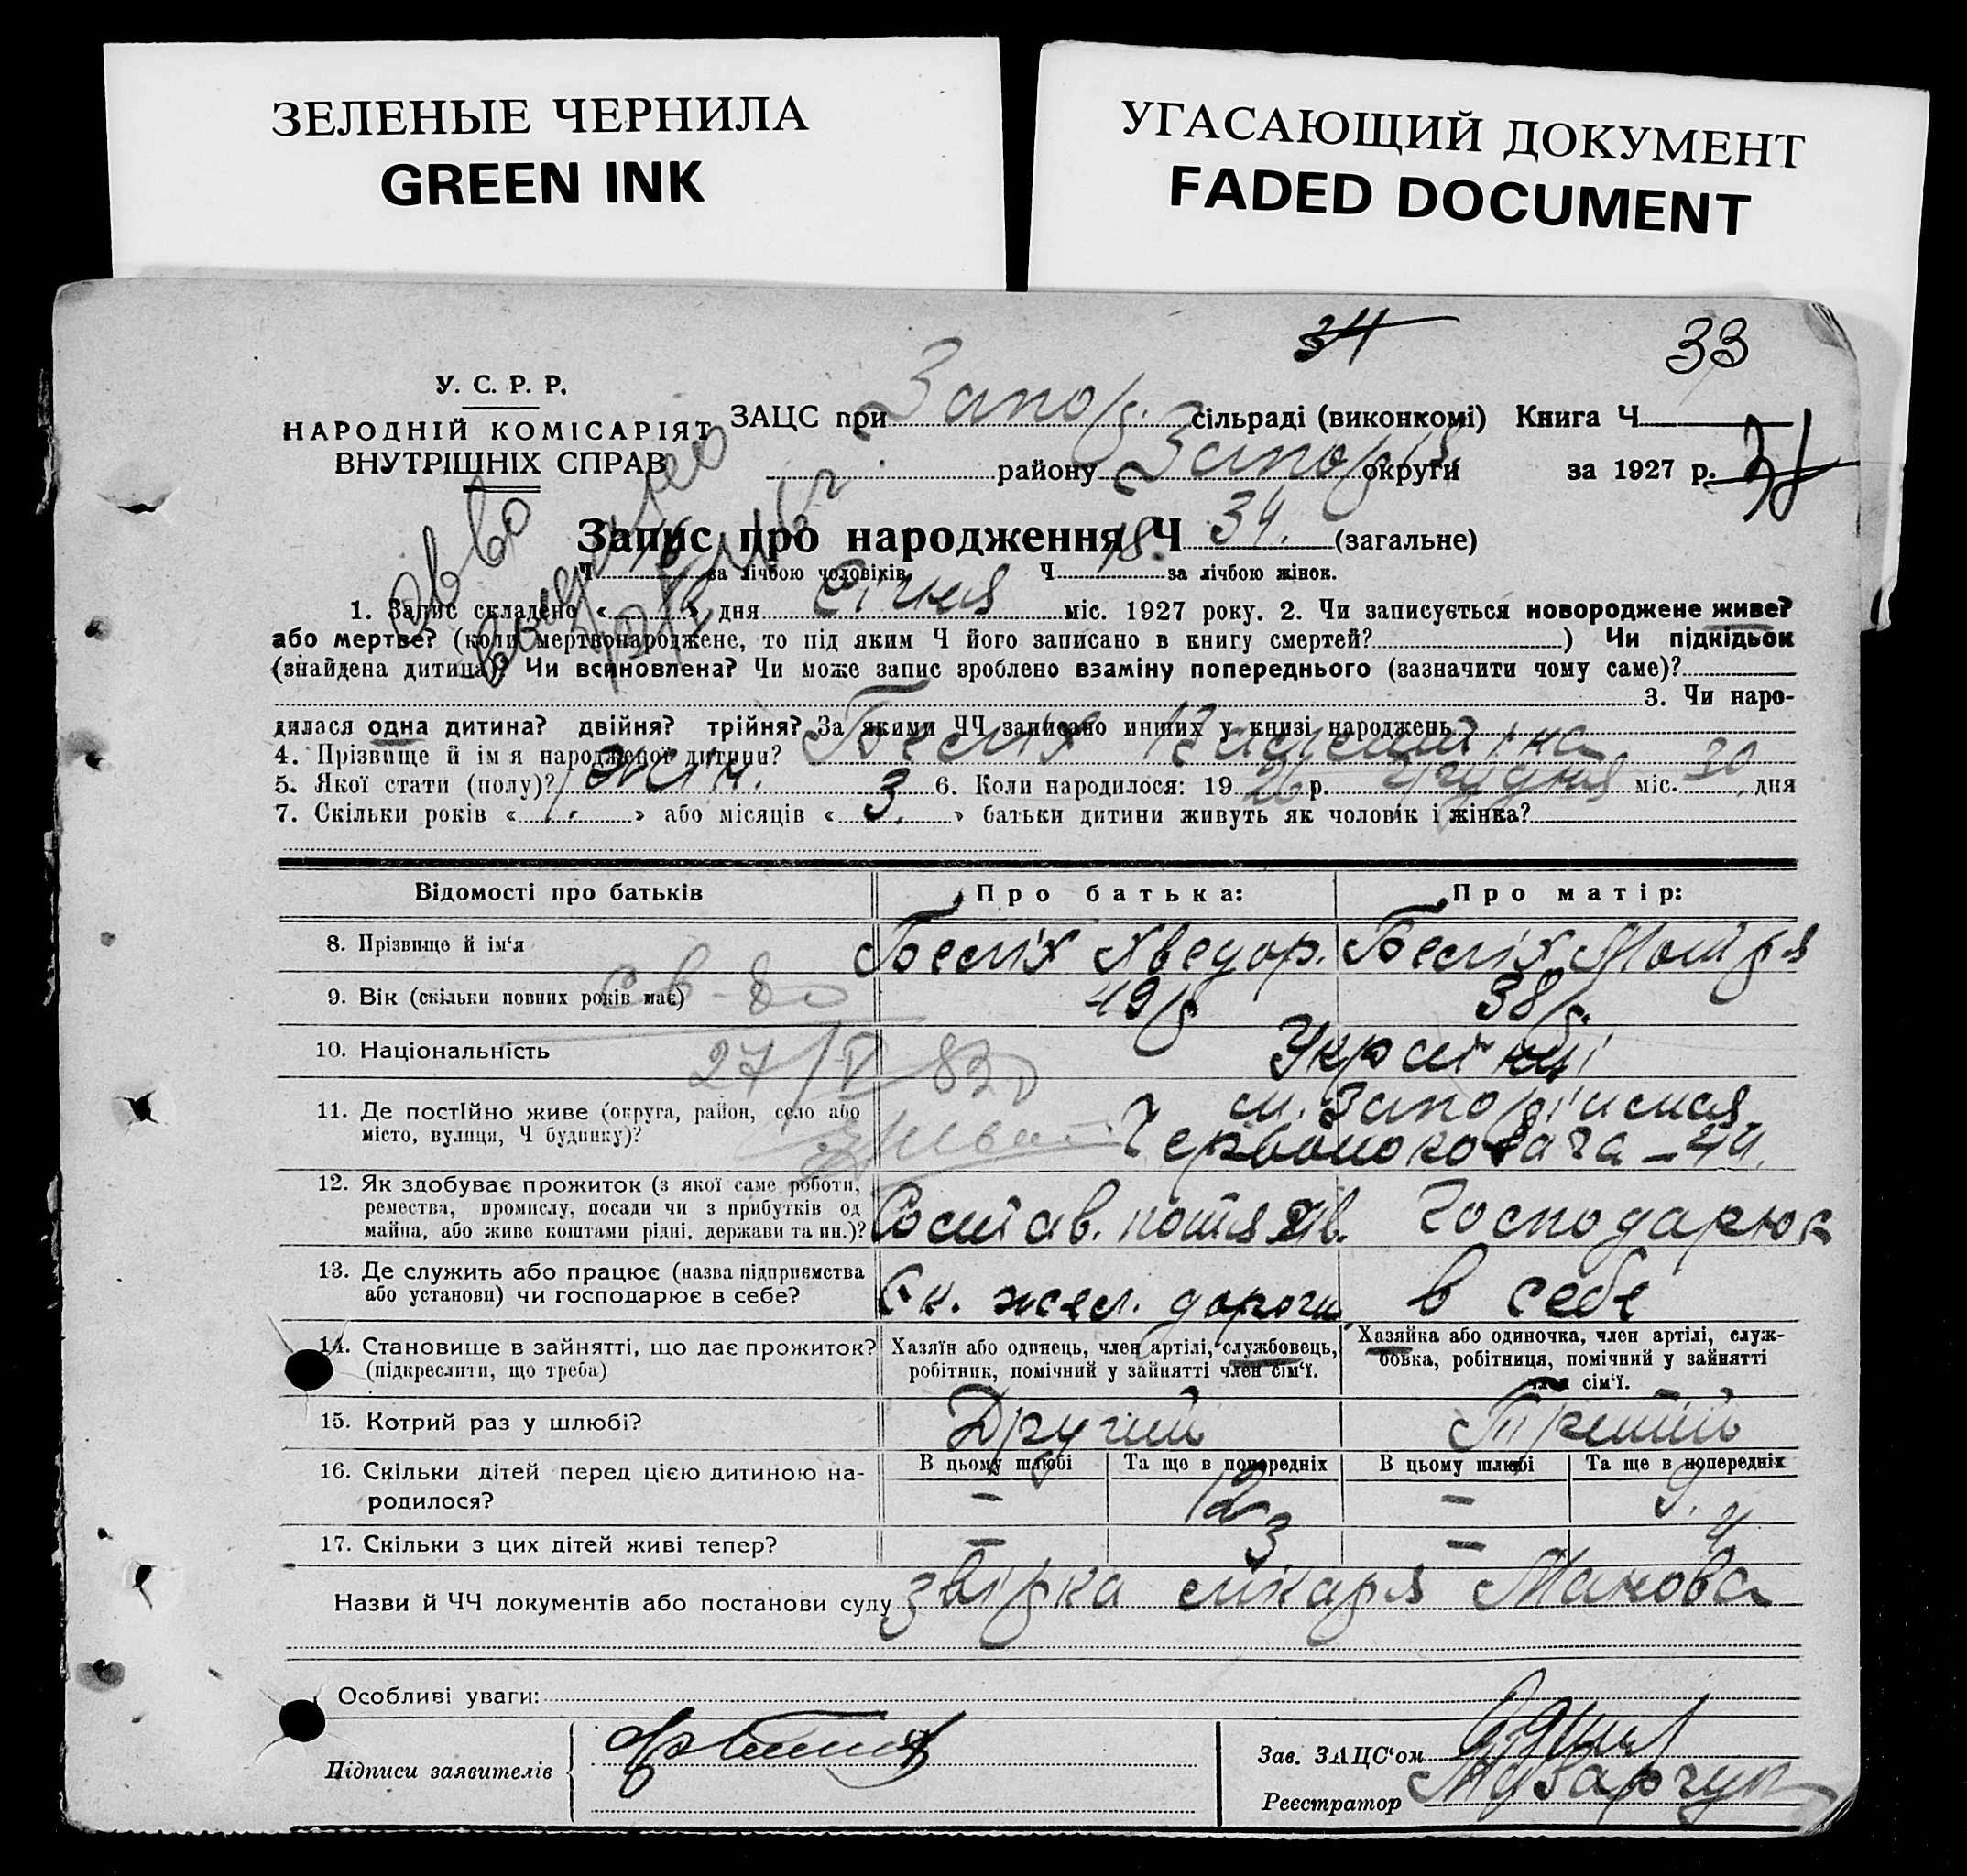 ЗЕЛЕНЫЕ ЧЕРНИЛА
GREEN INK
УГАСАЮЩИЙ ДОКУМЕНТ
FADED DOCUMENT
34
33
У. С. Р. Р.
НАРОДНІЙ КОМІСАРІЯТ
ВНУТРІШНІХ СПРАВ
ЗАЦС при Запор. сільраді (виконкомі) Книга Ч
району Запоріз. округи за 1927 р.
Запис про народження Ч 34. (загальне)
Ч 16 за лічбою чоловіків Ч 18. за лічбою жінок.
1. Запис складено « » дня Січня міс. 1927 року. 2. Чи записується новороджене живе?
або мертве? (коли мертвонароджене, то під яким Ч його записано в книгу смертей? ) Чи підкідьок
(знайдена дитина)? Чи всиновлена? Чи може запис зроблено взаміну попереднього (зазначити чому саме)?
3. Чи наро-
дилася одна дитина? двійня? трійня? За якими ЧЧ записано инших у книзі народжень?
4. Прізвище й ім я народженої дитини? Беліх Валентіна
5. Якої стати (полу)? жін. 6. Коли народилося: 19 26 р. Грудня міс. 30 дня
7. Скільки років « » або місяців « 3. » батьки дитини живуть як чоловік і жінка?
Відомості про батьків Про батька: Про матір:
8. Прізвище й ім‘я Беліх Хведор. Беліх Мотря
9. Вік (скільки повних років має) 49 р 38 р.
св-во
10. Національність Українці
27/V 83
11. Де постійно живе (округа, район, село або м. Запоріжжя
місто, вулиця, Ч будинку)? Червонокозача - 44.
12. Як здобуває прожиток (з якої саме роботи,
ремества, промислу, посади чи з прибутків од
майна, або живе коштами рідні, держави та ин.)? Состав. потягів. Господарює
13. Де служить або працює (назва підприємства
або установи) чи господарює в себе? Єк. жел. дороги в себе
14. Становище в зайнятті, що дає прожиток?
(підкреслити, що треба)
Хазяїн або одинець, член артілі, службовець,
робітник, помічний у зайнятті член сім‘ї.
Хазяйка або одиночка, член артілі, служ-
бовка, робітниця, помічний у зайнятті
член сім‘ї.
15. Котрий раз у шлюбі? Другий Третій
16. Скільки дітей перед цією дитиною на-
родилося?
В цьому шлюбі Та ще в попередніх В цьому шлюбі Та ще в попередніх
– 12 – 9.
17. Скільки з цих дітей живі тепер? – 3 – 4
Назви й ЧЧ документів або постанови суду звірка лікаря Манова
Особливі уваги:
Підписи заявителів
Зав. ЗАЦС‘ом
Реєстратор